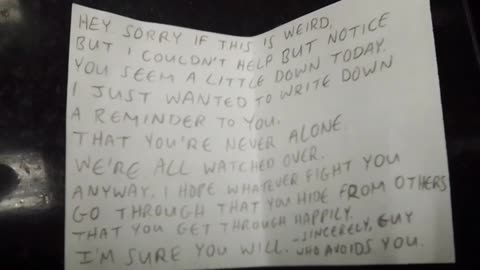 HEY SORRY IF THIS IS WEIRD,
BUT I COULDN'T HELP BUT NOTICE
YOU SEEM A LITTLE DOWN TODAY.
I JUST WANTED TO WRITE DOWN
A REMINDER TO YOU.
THAT YOU'RE NEVER ALONE
WE'RE ALL WATCHED OVER.
ANYWAY. I HOPE WHATEVER FIGHT YOU
GO THROUGH THAT YOU HIDE FROM OTHERS
THAT YOU GET THROUGH HAPPILY.
I'M SURE YOU WILL. -SINCERELY, GUY
WHO AVOIDS YOU.